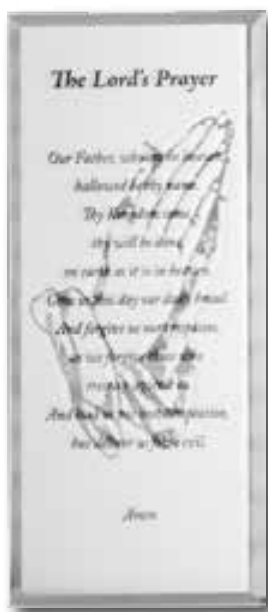 The Lord's Prayer
Our Father, who art in heaven,
hallowed be thy name.
Thy kingdom come,
thy will be done,
on earth as it is in heaven.
Give us this day our daily bread.
And forgive us our trespasses,
as we forgive those who
trespass against us.
And lead us not into temptation,
but deliver us from evil.
Amen